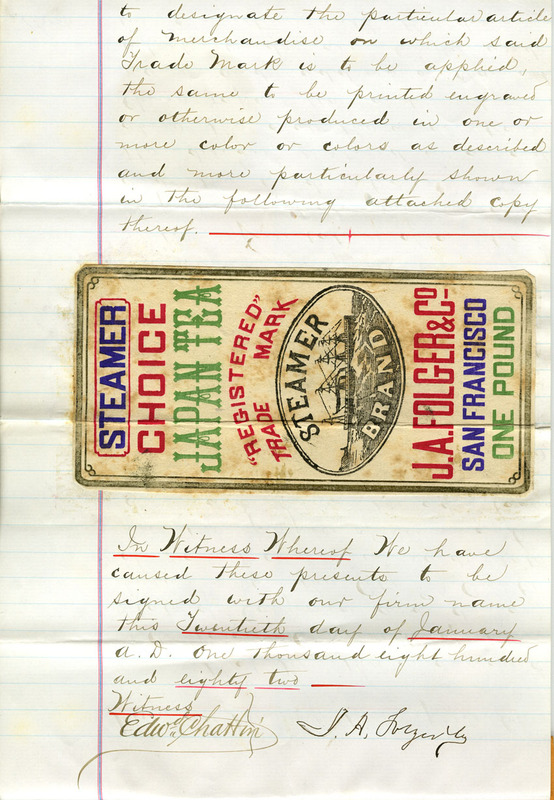 to designate the particular article
of merchandise on which said
Trade Mark is to be applied,
the same to be printed engraved
or otherwise produced in one or
more color or colors as described
and more particularly shown
in the following attached copy
thereof.
STEAMER
CHOICE
JAPAN TEA
"REGISTERED"
TRADE MARK
STEAMER
BRAND
J.A. FOLGER & Co
SAN FRANCISCO
ONE POUND
In Witness Whereof We have
caused these presents to be
signed with our firm name
this Twentieth day of January
A. D. One thousand eight hundred
and eighty two
Witness
Edwd Chattin J. A. Folger & Co